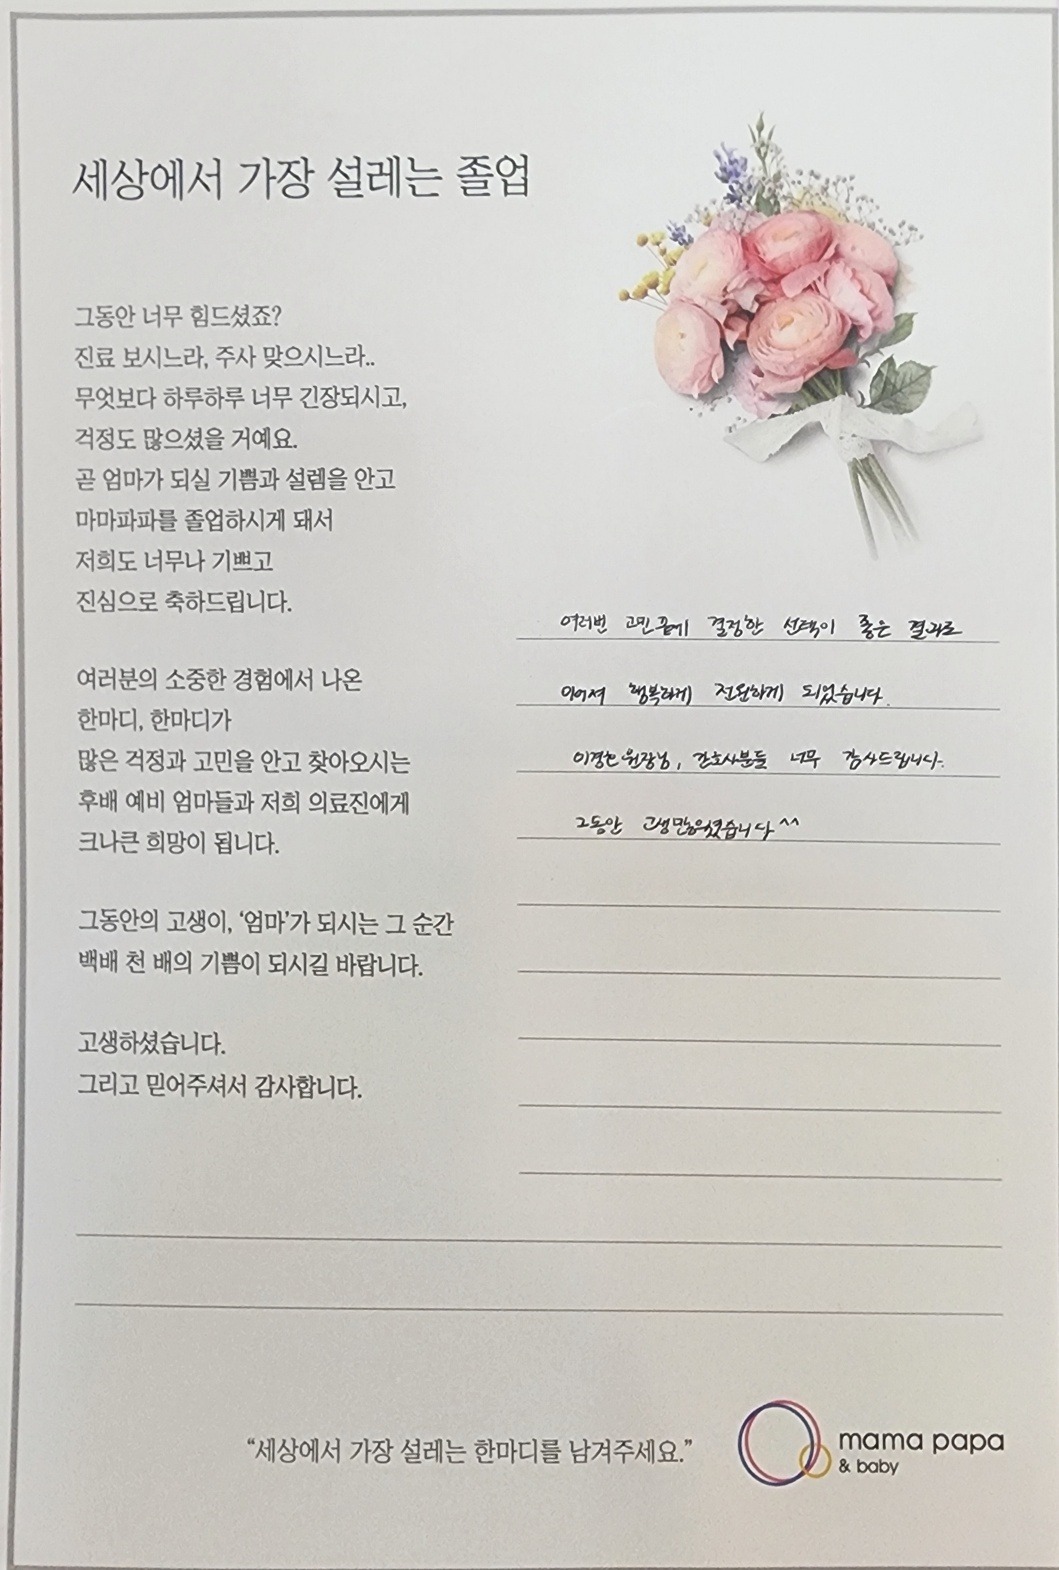 세상에서 가장 설레는 졸업
그동안 너무 힘드셨죠?
진료 보시느라, 주사 맞으시느라..
무엇보다 하루하루 너무 긴장되시고,
걱정도 많으셨을 거예요.
곧 엄마가 되실 기쁨과 설렘을 안고
마마파파를 졸업하시게 돼서
저희도 너무나 기쁘고
진심으로 축하드립니다.
여러분의 소중한 경험에서 나온
한마디, 한마디가
많은 걱정과 고민을 안고 찾아오시는
후배 예비 엄마들과 저희 의료진에게
크나큰 희망이 됩니다.
그동안의 고생이, ‘엄마’가 되시는 그 순간
백배 천 배의 기쁨이 되시길 바랍니다.
고생하셨습니다.
그리고 믿어주셔서 감사합니다.
여러번 고민끝에 결정한 선택이 좋은 결과로
이어져 행복하게 전원하게 되었습니다.
원장님, 간호사분들 너무 감사드립니다.
그동안 고생많으셨습니다^^
“세상에서 가장 설레는 한마디를 남겨주세요.”
mama papa
& baby